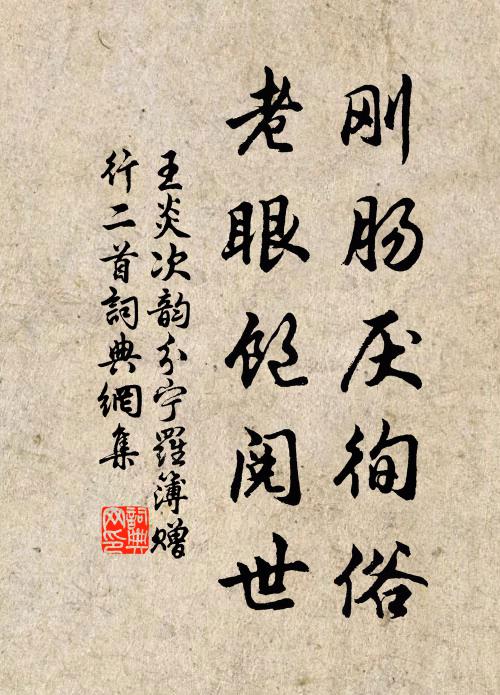 刚肠厌徇俗
老眼饱阅世
王炎次韵分宁羅簿赠
行二首詞典網集
詞典网印